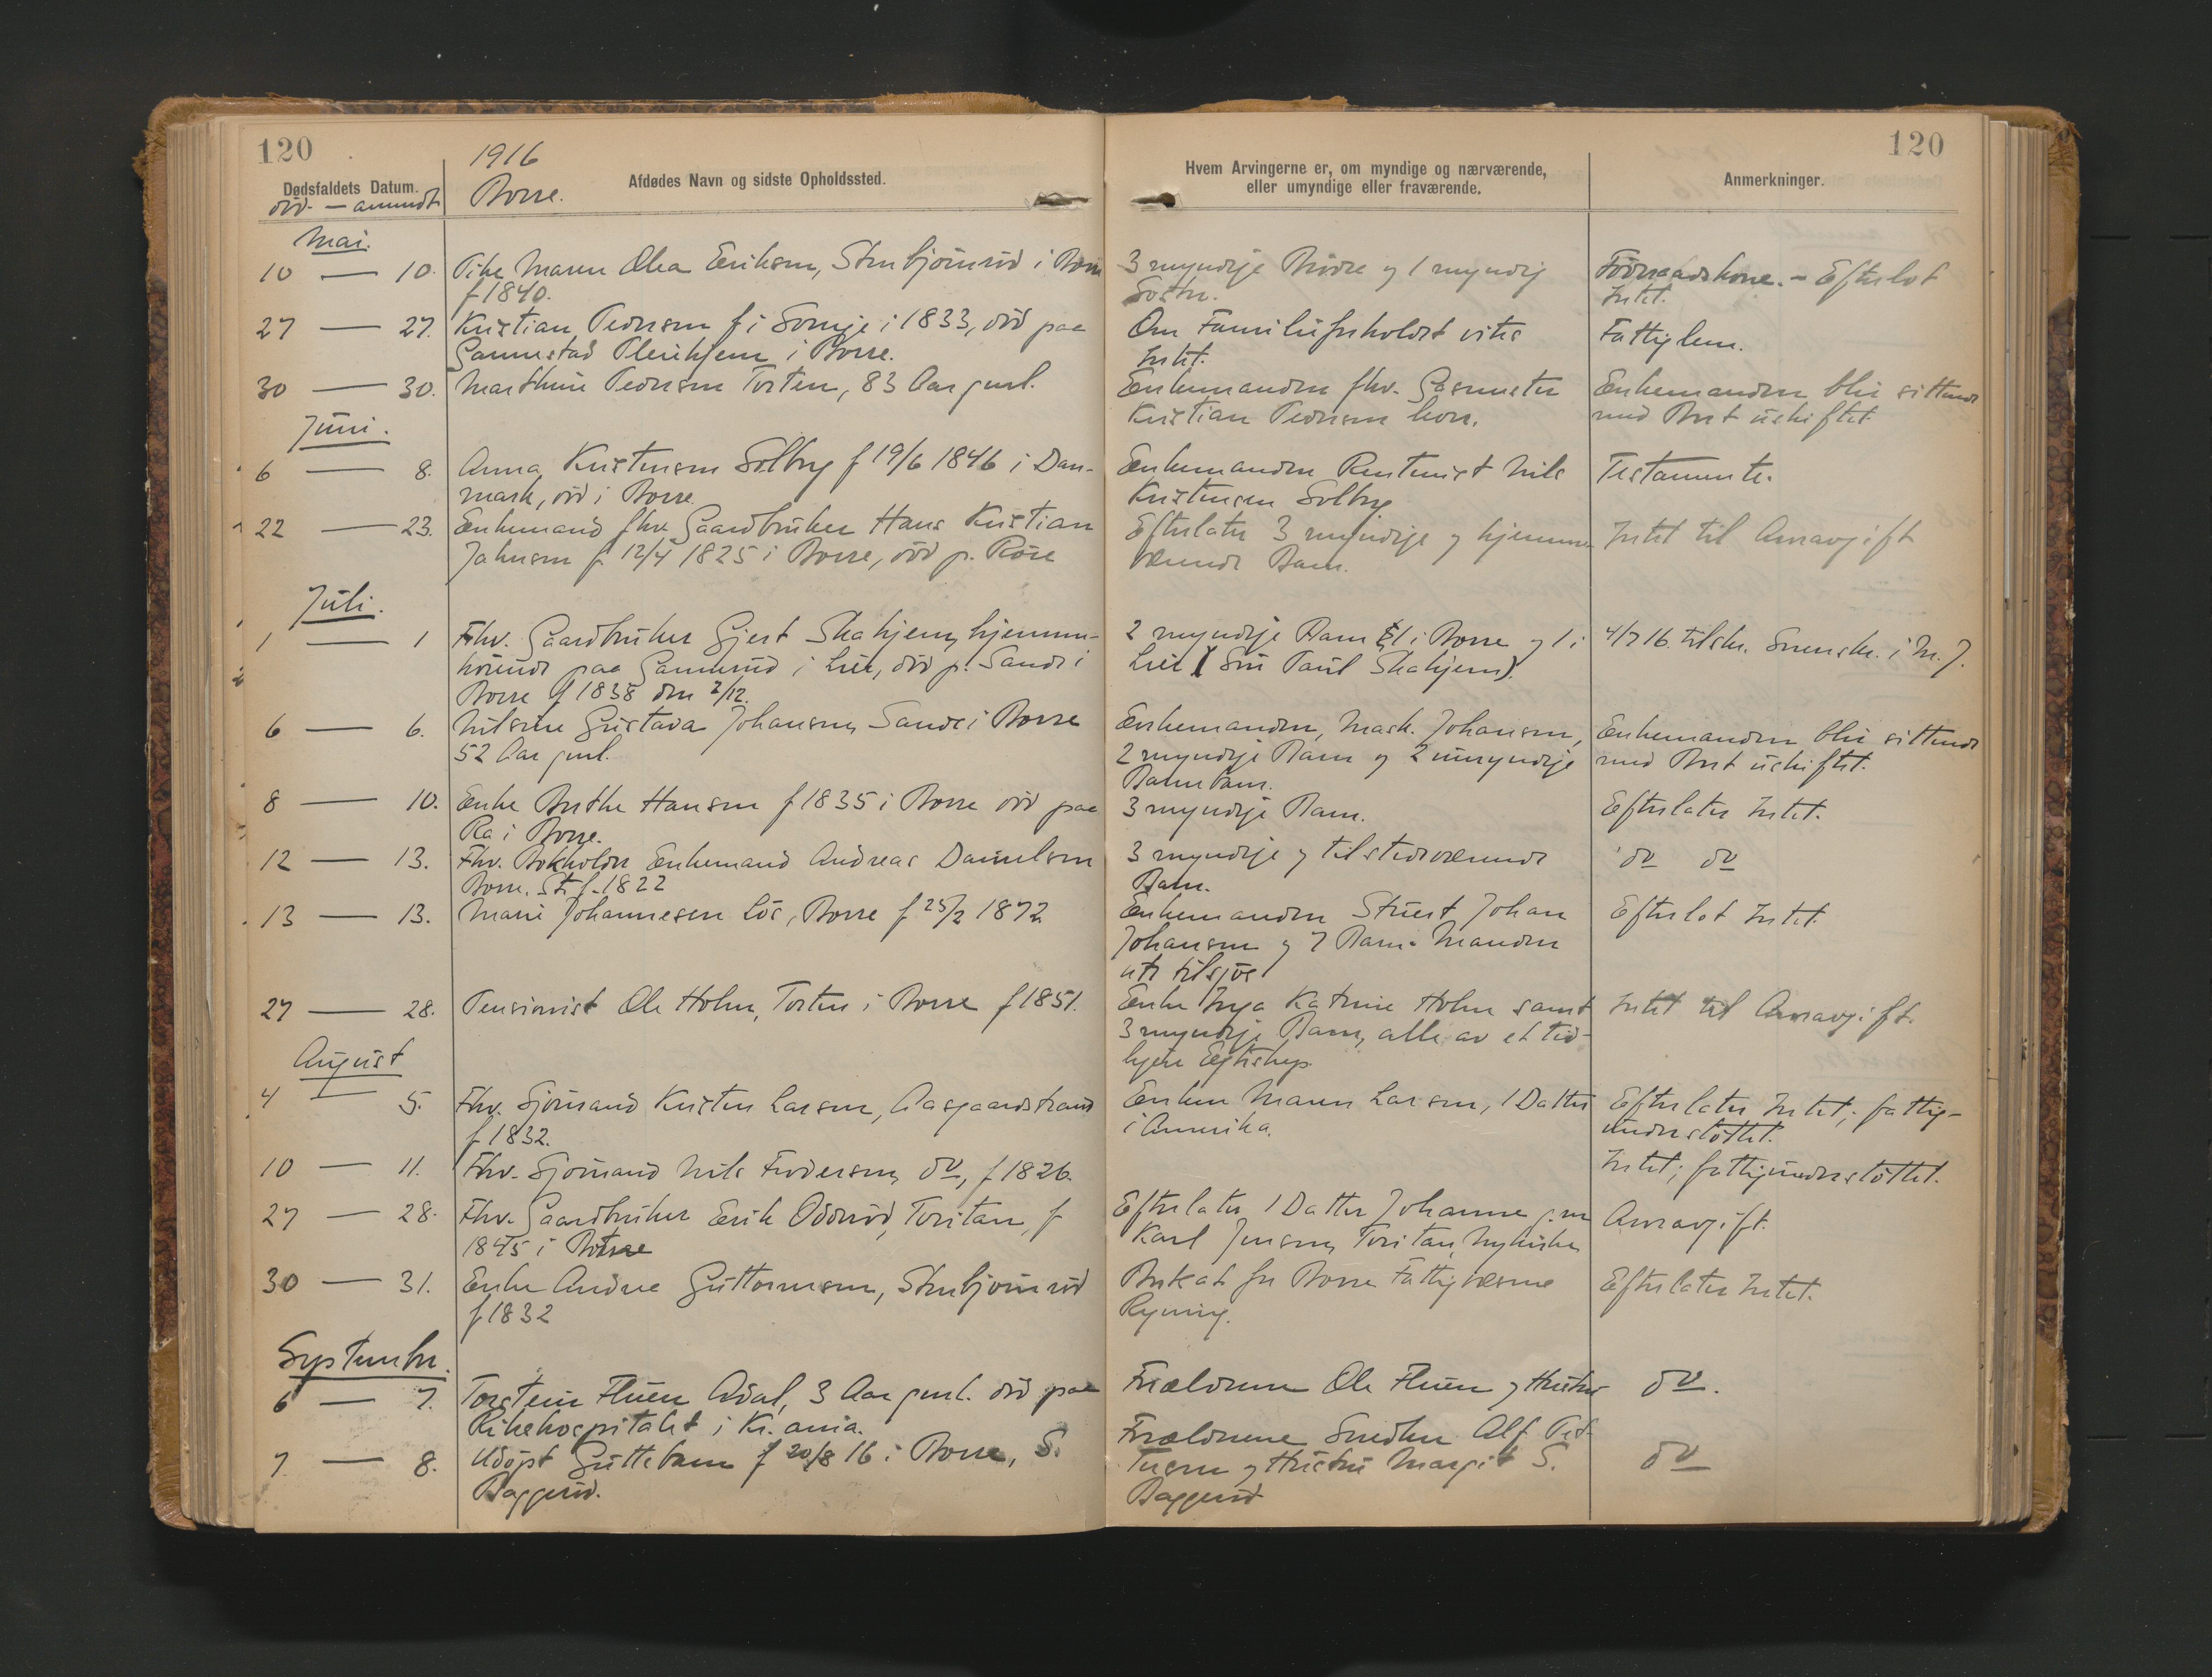 120
1916
Dødsfaldets Datum.
død. — anmeldt
Borre.
Afdødes Navn og sidste Opholdssted.
Hvem Arvingerne er, om myndige og nærværende,
eller umyndige eller fraværende.
Anmerkninger.
120
Mai.
10 — 10. Pike Maren Olea Eriksen, Stenbjörnröd i Borre
f 1840.
3 myndige Brödre og 1 myndig
Söster.
Födraadskone. – Efterlot
Intet.
27 — 27. Kristian Pedersen f i Sverige i 1833, död paa
Gannestad Pleiehjem i Borre.
Om Familieforholdet vites
Intet.
Fattiglem.
30 — 30. Marthine Pedersen Torten, 83 Aar gml.
Enkemanden fhv. Gasmester
Kristian Pedersen lever.
Enkemanden blir sittende
med Boet uskiftet
Juni.
6 — 8. Anna Kristensen Solbrg f 19/6 1846 i Dan-
mark, död i Borre
Enkemanden Rentenist Nils
Kristensen Solbrg
Testamente.
22 — 23. Enkemand fhv. Gaardbruker Hans Kristian
Jahnsen f 12/4 1825 i Borre, död p. Röre
Efterlater 3 myndige og hjemme
værende Barn.
Intet til Arveavgift
Juli.
1 — 1 Fhv. Gaardbruker Gjert Skahjem, hjemme-
hörende paa Gannerud i Lier, död p. Sande i
Borre f 1838 den 2/12.
2 myndige Barn 1 i Borre og 1 i
Lier (Sön Paul Skahjem).
4/7 16. tilskr. Sorenskr. i N. J.
6 — 6. Nilsine Gustava Johansen, Sande i Borre
52 Aar gml.
Enkemanden, Mask. Johansen,
2 myndige Barn og 2 umyndige
Barnebarn.
Enkemanden blir sittende
med Boet uskiftet.
8 — 10. Enke Berthe Hansen f 1835 i Borre död paa
Ra i Borre.
3 myndige Barn.
Efterlater Intet.
12 — 13. Fhv. Bokholder Enkemand Andreas Danielsen
Borre. St. f. 1822
3 myndige og tilstedeværende
Barn.
do do
13 — 13. Marie Johannesen Lös, Borre f 25/2 1872
Enkemanden Stuert Johan
Johansen og 7 Barn. Manden
ute tilsjös
Efterlot Intet.
27 — 28. Pensionist Ole Holm, Torten i Borre f 1851.
Enke Inga Katrine Holm samt
3 myndige Barn, alle av et tid-
ligere Egteskap.
Intet til Arveavgift.
August
4 — 5. Fhv. Sjömand Kristen Larsen, Aasgaardstrand
f 1832.
Enken Maren Larsen, 1 Datter
i Amerika.
Efterlater Intet; fattig-
understöttet.
10 — 11. Fhv. Sjömand Nils Pedersen, do, f 1826.
Intet; fattigunderstöttet.
27 — 28. Fhv. Gaardbruker Erik Odderöd, Toritan, f
1845 i Borre
Efterlater 1 Datter Johanne g. m
Karl Jensen, Toritan, Nykirke
Arveavgift.
30 — 31. Enke Andrea Guttormsen, Stenbjörnröd
f 1832
Bekat for Borre Fattigvæsens
Regning.
Efterlater Intet.
September.
6 — 7. Torstein Fluen Adal, 3 Aar gml. död paa
Rikshospitalet i Kr.ania.
Forældrene Ole Fluen og Hustru
do.
7 — 8. Udöpt Guttebarn f 20/8 16 i Borre, S.
Baggerud.
Forældrene Snedker Alf Pet-
tersen og Hustru Margit S.
Baggerud
do